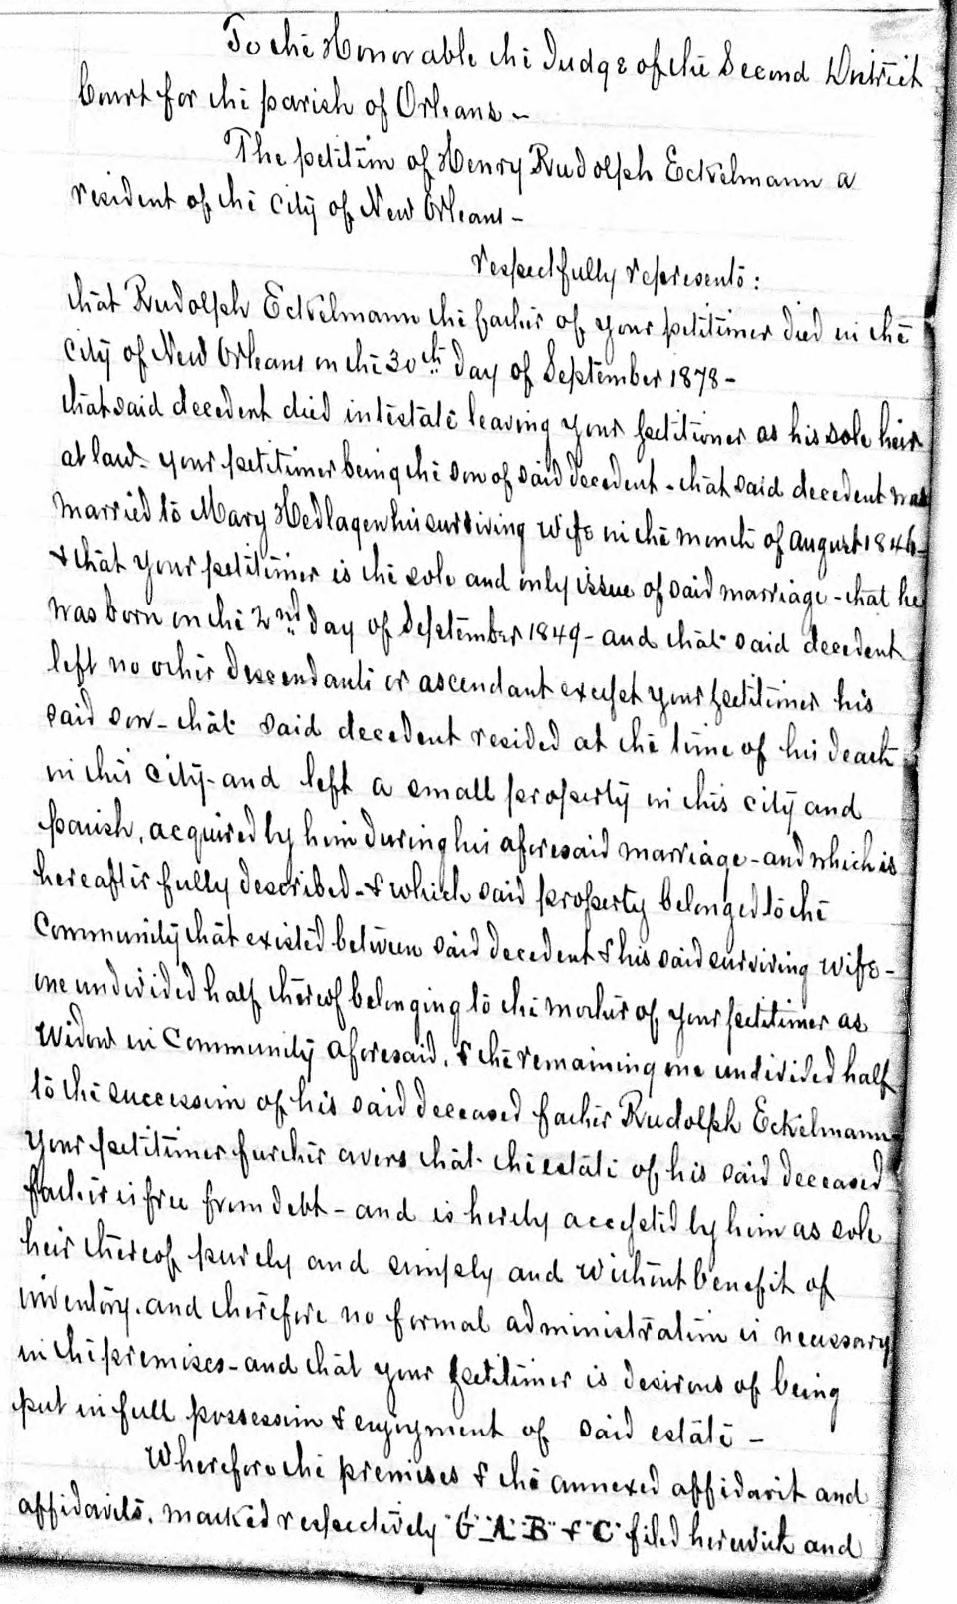 To the Honorable the Judge of the Second District
Court for the parish of Orleans -
The petition of Henry Rudolph Eckelmann a
resident of the City of New Orleans -
respectfully represents:
that Rudolph Eckelmann the father of your petitioner died in the
City of New Orleans on the 30th day of September 1878 -
that said decedent died intestate leaving your petitioner as his sole heir
at law - your petitioner being the son of said decedent - that said decedent was
married to Mary Hedlagen his surviving wife in the month of August 1846 -
& that your petitioner is the sole and only issue of said marriage - that he
was born on the 2nd day of September 1849 - and that said decedent
left no other descendants or ascendant except your petitioner his
said son - that said decedent resided at the time of his death
in this City - and left a small property in this city and
parish, acquired by him during his aforesaid marriage - and which is
hereafter fully described - & which said property belonged to the
Community that existed between said decedent & his said surviving wife -
one undivided half thereof belonging to the mother of your petitioner as
widow in Community aforesaid, & the remaining one undivided half
to the succession of his said deceased father Rudolph Eckelmann -
Your petitioner further avers that the estate of his said deceased
father is free from debt - and is hereby accepted by him as sole
heir thereof purely and simply and without benefit of
inventory. and therefore no formal administration is necessary
in the premises - and that your petitioner is desirous of being
put in full possession & enjoyment of said estate -
Wherefore the premises & the annexed affidavit and
affidavits, marked respectively "G" "A" "B" & "C" filed herewith and